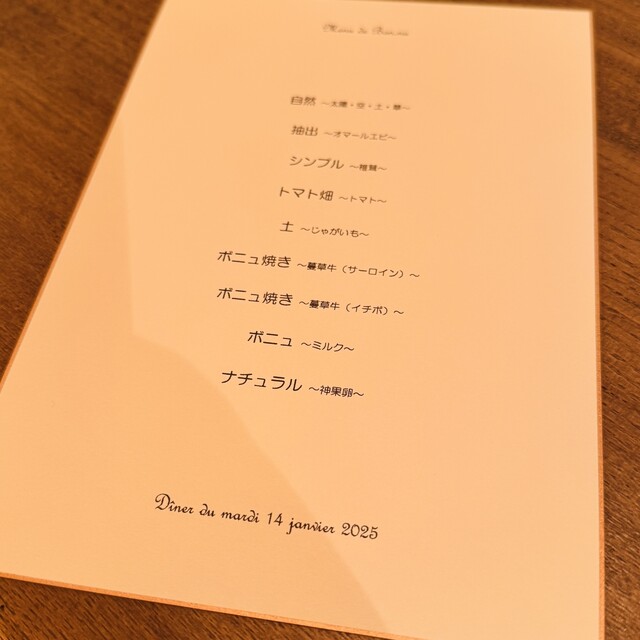 自然 〜太陽・空・土・草〜
抽出 〜オマールエビ〜
シンプル 〜椎茸〜
トマト畑 〜トマト〜
土 〜じゃがいも〜
ボニュ焼き 〜蔓草牛（サーロイン）〜
ボニュ焼き 〜蔓草牛（イチボ）〜
ボニュ 〜ミルク〜
ナチュラル 〜神果卵〜
Dîner du mardi 14 janvier 2025